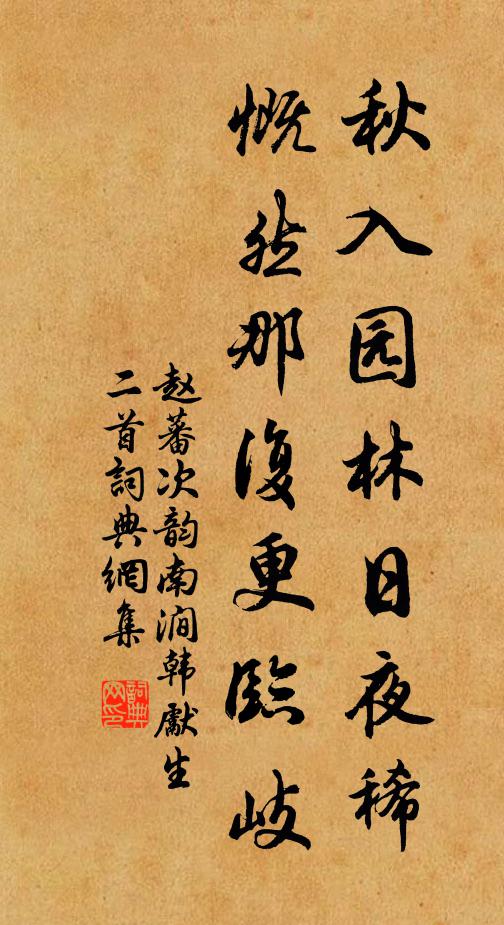 秋入园林日夜稀
慨然那復更臨岐
赵蕃次韵南澗韩獻生
二首詞典網集
詞典网印